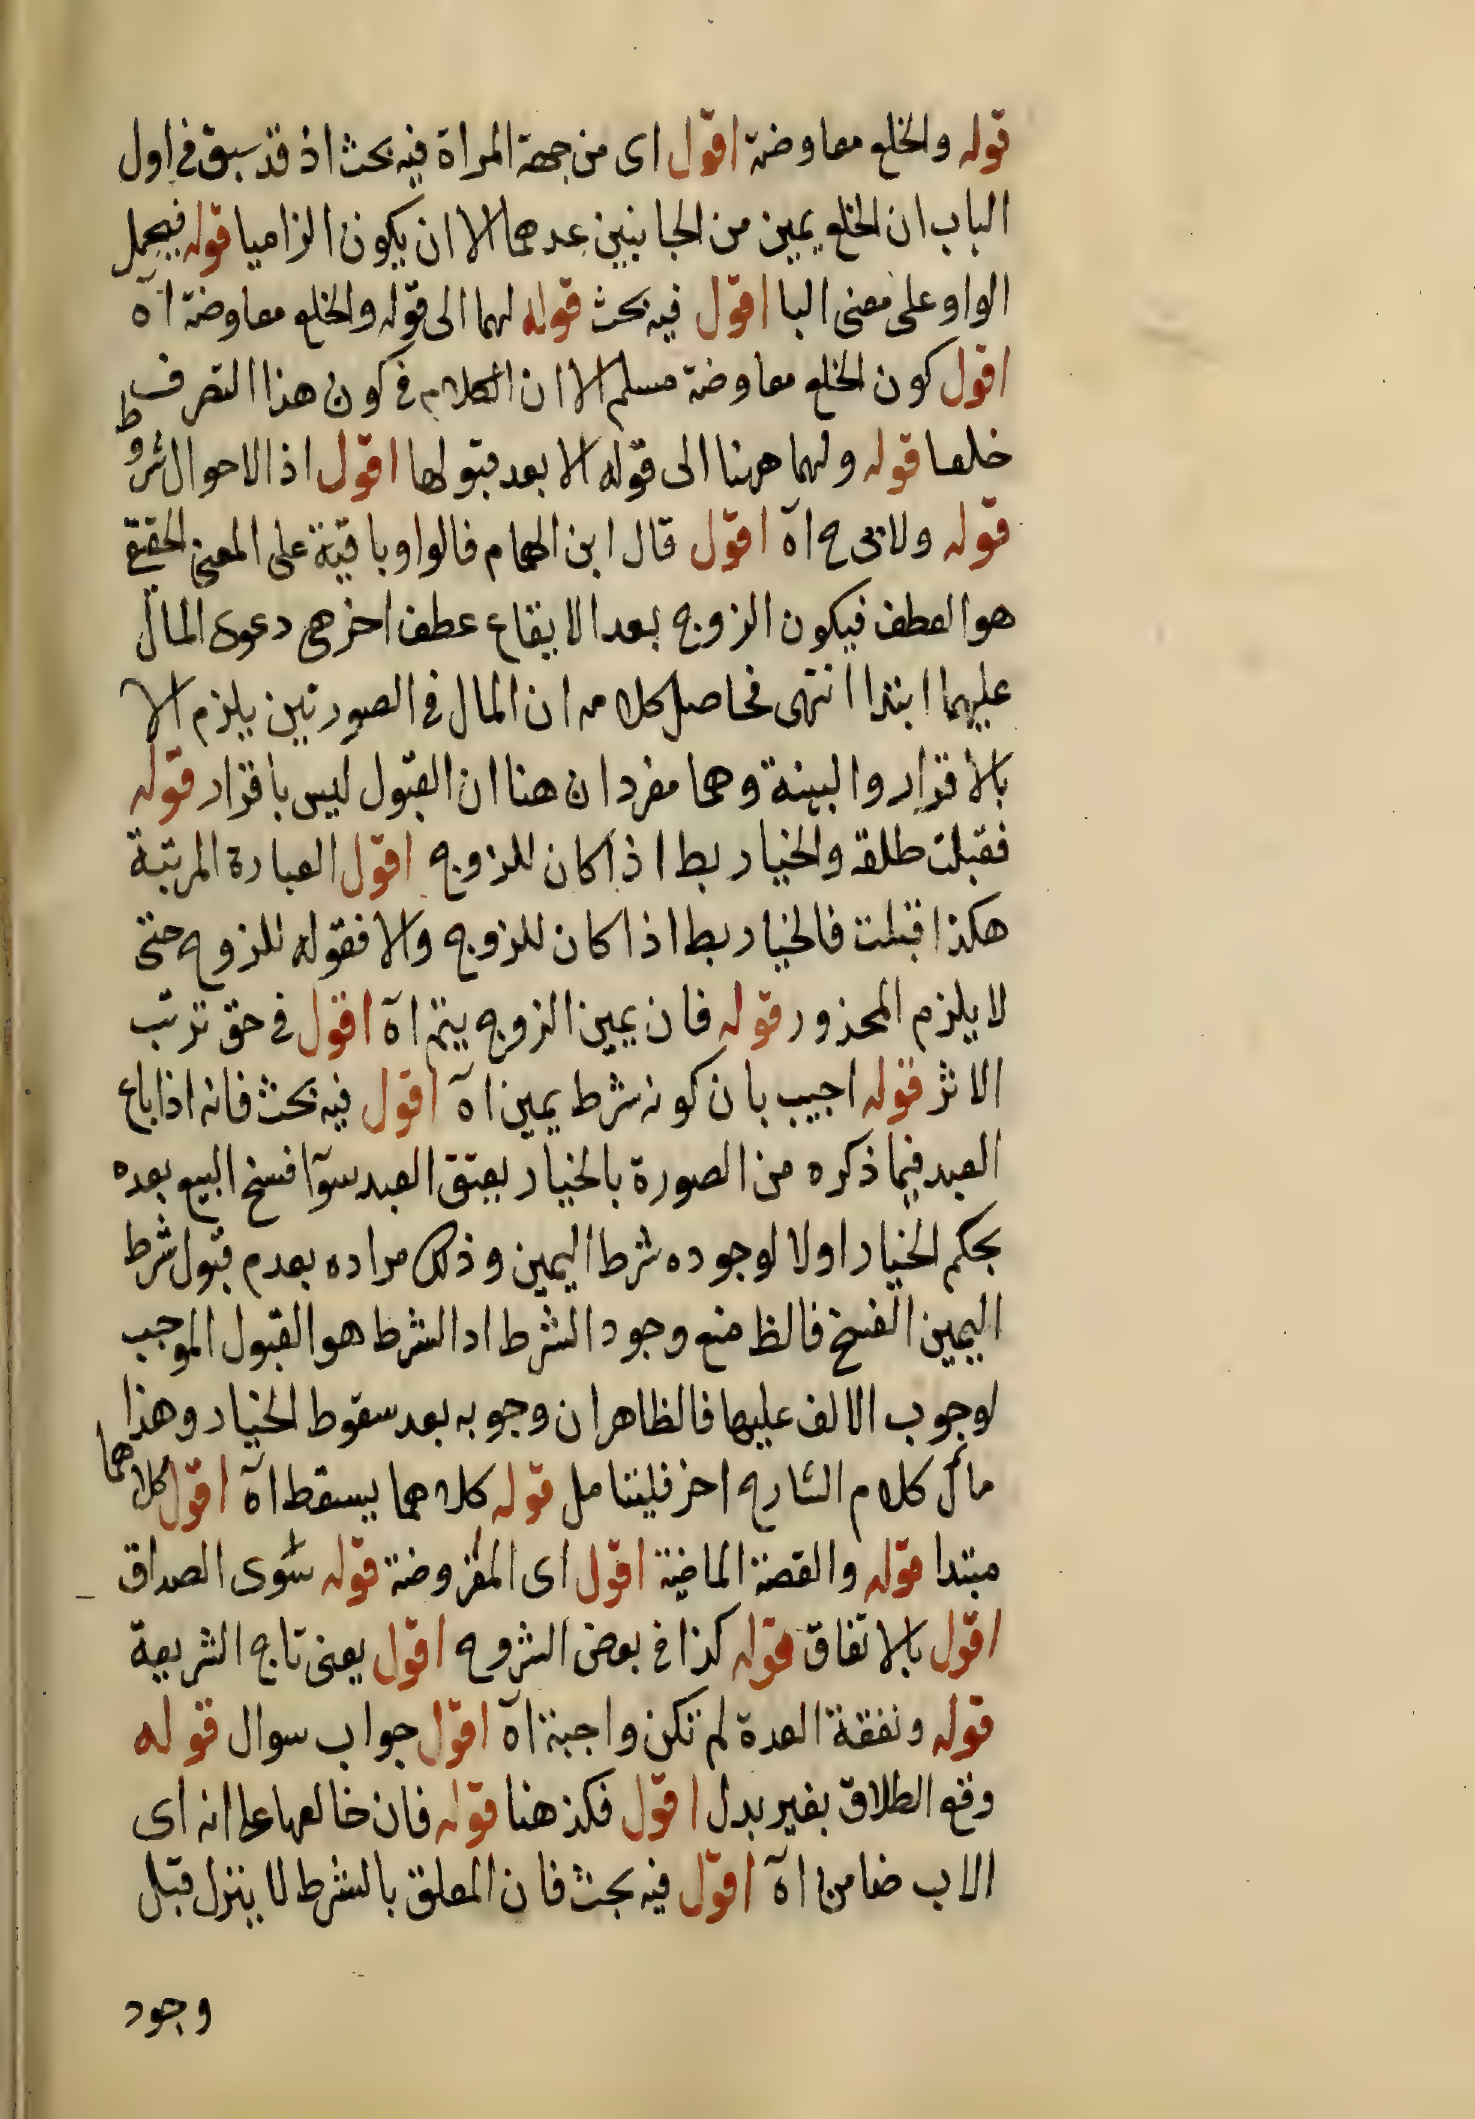 قوله والخلع معاوضة اقول اى من جهة المراة فيه بحث اذ قد سبق في اول
الباب ان الخلع يمين من الجانبين عدهما الا ان يكون الزاميا قوله فيحمل
الواو على معنى البا اقول فيه بحث قوله لهما الى قوله والخلع معاوضة اه
اقول كون الخلع معاوضة مسلم الا ان الكلام في كون هذا التصرف
خلعا قوله ولهما ههنا الى قوله الا بعد قبولها اقول اذ الاحوال شروط
قوله ولا يرجح اه اقول قال ابن الهمام فالواو باقية على المعنى الحقيقى
هو العطف فيكون الزوج بعد الايقاع عطف اخر هى دعوى المال
عليهما ابتدا انتهى فحاصل كلامه ان المال في الصورتين يلزم الا
بالاقرار والبينة وهما مفردان هنا ان القبول ليس باقرار قوله
فقبلت طلقه والخيار بط اذا كان للزوج اقول العبارة المرتبة
هكذا قبلت فالخيار بط اذا كان للزوج والا فقوله للزوج حتى
لا يلزم المحذور قوله فان يمين الزوج يتم اه اقول في حق ترتب
الاثر قوله اجيب بان كونه شرط يمين اه اقول فيه بحث فانه اذا باع
العبد فيما ذكره من الصورة بالخيار يعتق العبد سوآ فسخ البيع بعده
بحكم الخيار اولا لوجوده شرط اليمين وذلك مراده بعدم قبول شرط
اليمين الفسخ فالظ منع وجود الشرط اد الشرط هو القبول الموجب
لوجوب الالف عليها فالظاهر ان وجوبه بعد سقوط الخيار وهذا
مآل كلام الشارح اخر فليتامل قوله كلاهما يسقط اه اقول كلاهما
مبتدا قوله والقصة الماضية اقول اى المفروضة قوله سوى الصداق
اقول بالاتفاق قوله كذا في بعض الشروح اقول يعنى تاج الشريعة
قوله ونفقة العدة لم تكن واجبة اه اقول جواب سوال قوله
وقع الطلاق بغير بدل اقول فكذ هنا قوله فان خالعها على انه اى
الاب ضامن اه اقول فيه بحث فان المعلق بالشرط لا ينزل قبل
وجود